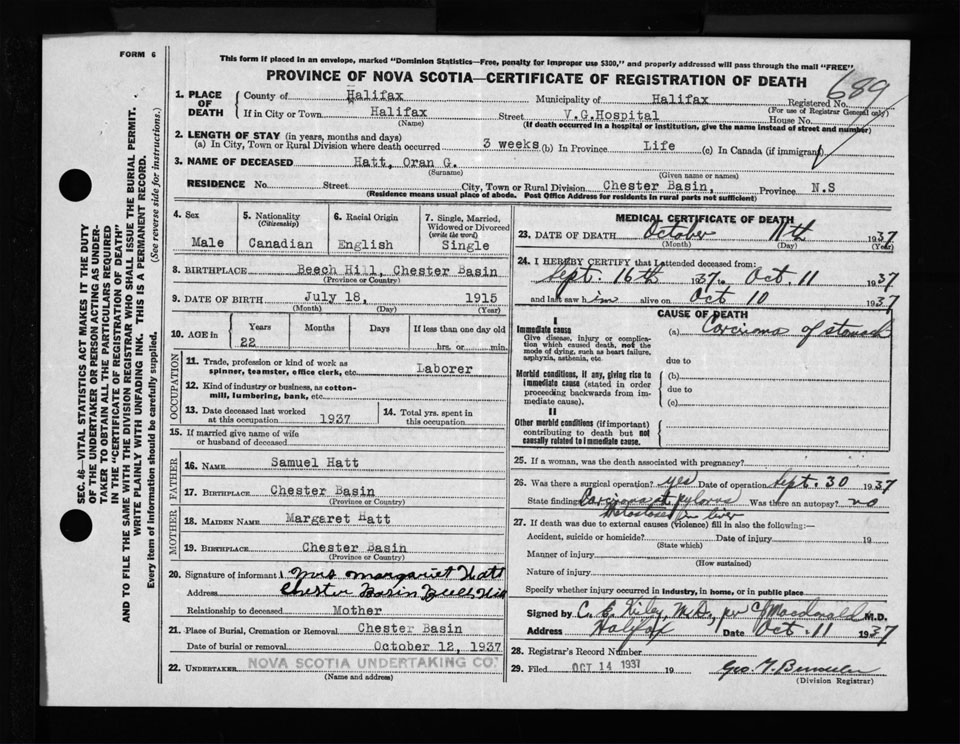 FORM 6
This form if placed in an envelope, marked "Dominion Statistics—Free, penalty for improper use $300," and properly addressed will pass through the mail "FREE".
PROVINCE OF NOVA SCOTIA—CERTIFICATE OF REGISTRATION OF DEATH
689
1. PLACE OF DEATH
County of Halifax Municipality of Halifax Registered No.
(For use of Registrar General only)
If in City or Town Halifax Street V.G.Hospital House No.
(Name) (If death occurred in a hospital or institution, give the name instead of street and number)
2. LENGTH OF STAY (in years, months and days)
(a) In City, Town or Rural Division where death occurred 3 weeks (b) In Province Life (c) In Canada (if immigrant)
3. NAME OF DECEASED Hatt, Oran G.
(Surname) (Given name or names)
RESIDENCE No. Street City, Town or Rural Division Chester Basin, Province N.S
(Residence means usual place of abode. Post Office Address for residents in rural parts not sufficient)
4. Sex 5. Nationality 6. Racial Origin 7. Single, Married,
(Citizenship) Widowed or Divorced
(write the word)
Male Canadian English Single
8. BIRTHPLACE Beech Hill, Chester Basin
(Province or Country)
9. DATE OF BIRTH July 18, 1915
(Month) (Day) (Year)
10. AGE in Years Months Days If less than one day old
22 hrs. or min.
OCCUPATION
11. Trade, profession or kind of work as
spinner, teamster, office clerk, etc. Laborer
12. Kind of industry or business, as cotton-
mill, lumbering, bank, etc.
13. Date deceased last worked
at this occupation 1937
14. Total yrs. spent in
this occupation
15. If married give name of wife
or husband of deceased
FATHER
16. NAME Samuel Hatt
17. BIRTHPLACE Chester Basin
(Province or Country)
MOTHER
18. MAIDEN NAME Margaret Hatt
19. BIRTHPLACE Chester Basin
(Province or Country)
20. Signature of informant Mrs Margariet Hatt
Address Chester Basin Beech Hill
Relationship to deceased Mother
21. Place of Burial, Cremation or Removal Chester Basin
Date of burial or removal October 12, 1937
22. UNDERTAKER NOVA SCOTIA UNDERTAKING CO.
(Name and address)
MEDICAL CERTIFICATE OF DEATH
23. DATE OF DEATH October 11th 1937
(Month) (Day) (Year)
24. I HEREBY CERTIFY that I attended deceased from:
Sept. 16th 1937 to Oct. 11 1937
and last saw him alive on Oct 10 1937
CAUSE OF DEATH
I
Immediate cause (a) Carcinoma of stomach
Give disease, injury or complica-
tion which caused death, not the
mode of dying, such as heart failure,
asphyxia, asthenia, etc. due to
Morbid conditions, if any, giving rise to (b)
immediate cause (stated in order
proceeding backwards from im- due to
mediate cause). (c)
II
Other morbid conditions (if important)
contributing to death but not
causally related to immediate cause.
25. If a woman, was the death associated with pregnancy?
26. Was there a surgical operation? yes Date of operation Sept. 30 1937
State findings Carcinoma at pylorus Was there an autopsy? no
Metastases in liver
27. If death was due to external causes (violence) fill in also the following:—
Accident, suicide or homicide? Date of injury 19
(State which)
Manner of injury
(How sustained)
Nature of injury
Specify whether injury occurred in Industry, in home, or in public place
Signed by C. E. Kiley, M.D., per C Macdonald M.D.
Address Halifax Date Oct. 11 1937
28. Registrar's Record Number
29. Filed OCT 14 1937 19 Geo. T.
(Division Registrar)
SEC. 46—VITAL STATISTICS ACT MAKES IT THE DUTY
OF THE UNDERTAKER OR PERSON ACTING AS UNDER-
TAKER TO OBTAIN ALL THE PARTICULARS REQUIRED
IN THE "CERTIFICATE OF REGISTRATION OF DEATH"
AND TO FILE THE SAME WITH THE DIVISION REGISTRAR WHO SHALL ISSUE THE BURIAL PERMIT.
WRITE PLAINLY WITH UNFADING INK. THIS IS A PERMANENT RECORD.
Every item of information should be carefully supplied. (See reverse side for instructions.)